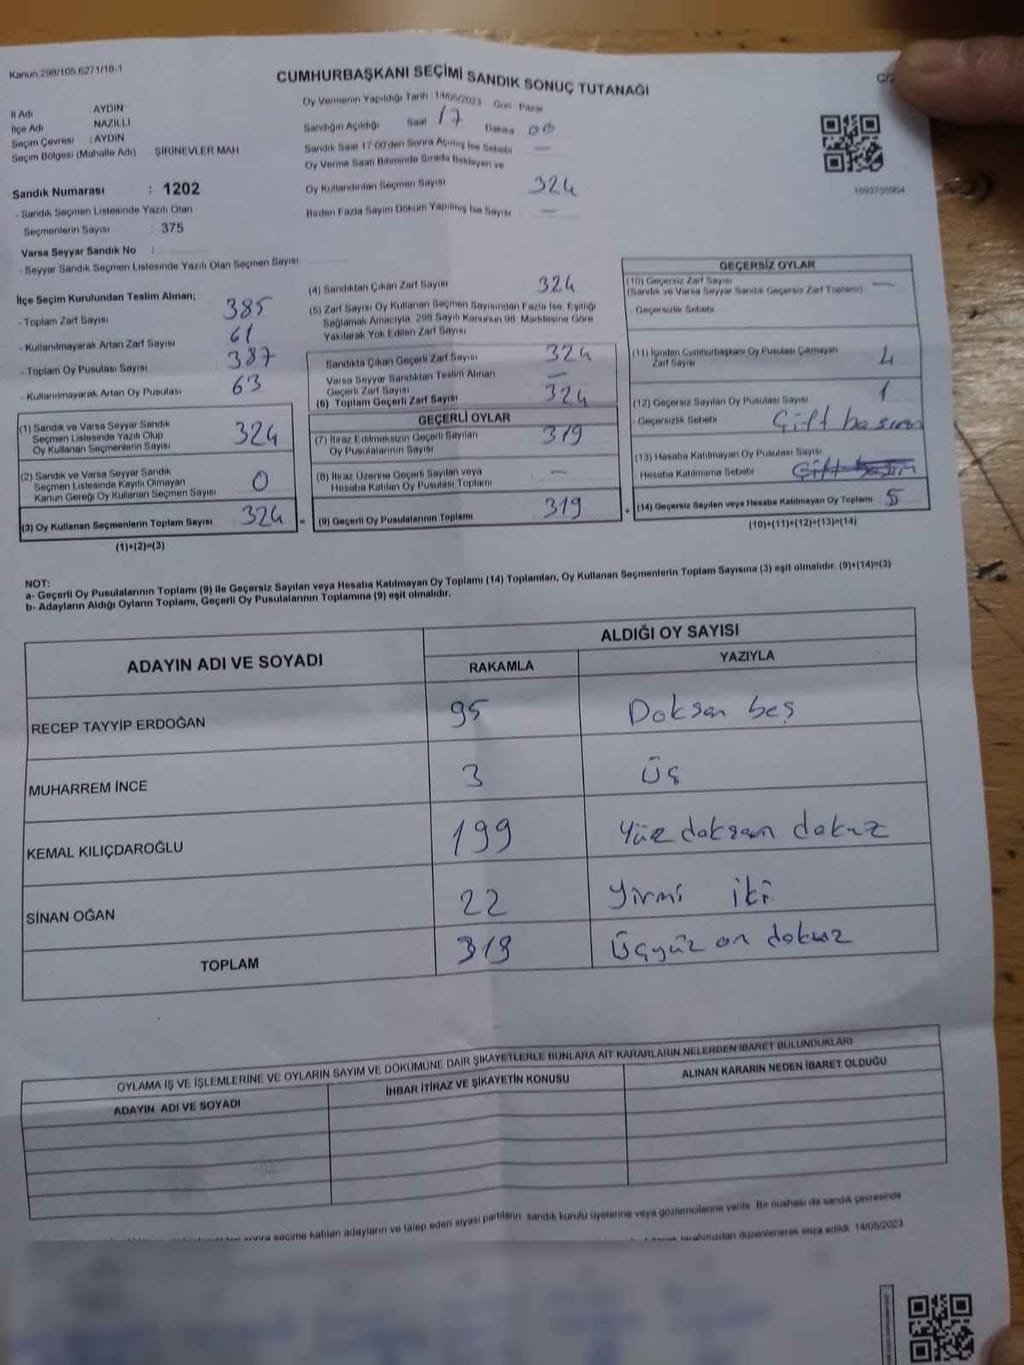 Kanun 298/105,6271/18-1
CUMHURBAŞKANI SEÇİMİ SANDIK SONUÇ TUTANAĞI
İl Adı AYDIN
İlçe Adı NAZİLLİ
Seçim Çevresi : AYDIN
Seçim Bölgesi (Mahalle Adı) ŞİRİNEVLER MAH
Sandık Numarası : 1202
- Sandık Seçmen Listesinde Yazılı Olan
Seçmenlerin Sayısı : 375
Varsa Seyyar Sandık No :
- Seyyar Sandık Seçmen Listesinde Yazılı Olan Seçmen Sayısı
Oy Vermenin Yapıldığı Tarih 14/05/2023 Gün Pazar
Sandığın Açıldığı Saat 17 Dakika 00
Sandık Saat 17:00'den Sonra Açılmış İse Sebebi —
Oy Verme Saati Bitiminde Sırada Bekleyen ve
Oy Kullandırılan Seçmen Sayısı 324
Birden Fazla Sayım Döküm Yapılmış İse Sayısı —
1093705904
İlçe Seçim Kurulundan Teslim Alınan;
- Toplam Zarf Sayısı 385
- Kullanılmayarak Artan Zarf Sayısı 61
- Toplam Oy Pusulası Sayısı 387
- Kullanılmayarak Artan Oy Pusulası 63
(1) Sandık ve Varsa Seyyar Sandık
Seçmen Listesinde Yazılı Olup
Oy Kullanan Seçmenlerin Sayısı 324
(2) Sandık ve Varsa Seyyar Sandık
Seçmen Listesinde Kayıtlı Olmayan
Kanun Gereği Oy Kullanan Seçmen Sayısı 0
(3) Oy Kullanan Seçmenlerin Toplam Sayısı 324
(1)+(2)=(3)
(4) Sandıktan Çıkan Zarf Sayısı 324
(5) Zarf Sayısı Oy Kullanan Seçmen Sayısından Fazla İse, Eşitliği
Sağlamak Amacıyla, 298 Sayılı Kanunun 98. Maddesine Göre
Yakılarak Yok Edilen Zarf Sayısı
Sandıkta Çıkan Geçerli Zarf Sayısı 324
Varsa Seyyar Sandıktan Teslim Alınan
Geçerli Zarf Sayısı —
(6) Toplam Geçerli Zarf Sayısı 324
GEÇERLİ OYLAR
(7) İtiraz Edilmeksizin Geçerli Sayılan
Oy Pusulasının Sayısı 319
(8) İtiraz Üzerine Geçerli Sayılan veya
Hesaba Katılan Oy Pusulası Toplamı —
(9) Geçerli Oy Pusulalarının Toplamı 319
GEÇERSİZ OYLAR
(10) Geçersiz Zarf Sayısı —
(Sandık ve Varsa Seyyar Sandık Geçersiz Zarf Toplamı)
- Geçersizlik Sebebi
(11) İçinden Cumhurbaşkanı Oy Pusulası Çıkmayan
Zarf Sayısı 4
(12) Geçersiz Sayılan Oy Pusulası Sayısı 1
- Geçersizlik Sebebi : Çift basım
(13) Hesaba Katılmayan Oy Pusulası Sayısı
Hesaba Katılmama Sebebi
(14) Geçersiz Sayılan veya Hesaba Katılmayan Oy Toplamı 5
(10)+(11)+(12)+(13)=(14)
NOT:
a- Geçerli Oy Pusulalarının Toplamı (9) ile Geçersiz Sayılan veya Hesaba Katılmayan Oy Toplamı (14) Toplamları, Oy Kullanan Seçmenlerin Toplam Sayısına (3) eşit olmalıdır. (9)+(14)=(3)
b- Adayların Aldığı Oyların Toplamı, Geçerli Oy Pusulalarının Toplamına (9) eşit olmalıdır.
ADAYIN ADI VE SOYADI
ALDIĞI OY SAYISI
RAKAMLA YAZIYLA
RECEP TAYYİP ERDOĞAN 95 Doksan beş
MUHARREM İNCE 3 Üç
KEMAL KILIÇDAROĞLU 199 Yüz doksan dokuz
SİNAN OĞAN 22 Yirmi iki
TOPLAM 319 Üçyüz on dokuz
OYLAMA İŞ VE İŞLEMLERİNE VE OYLARIN SAYIM VE DÖKÜMÜNE DAİR ŞİKAYETLERLE BUNLARA AİT KARARLARIN NELERDEN İBARET BULUNDUKLARI
ADAYIN ADI VE SOYADI İHBAR İTİRAZ VE ŞİKAYETİN KONUSU ALINAN KARARIN NEDEN İBARET OLDUĞU
sonra seçime katılan adayların ve talep eden siyasi partilerin sandık kurulu üyelerine veya gözlemcilerine verilir. Bir nüshası da sandık çevresinde
tarafımızdan düzenlenerek imza edildi. 14/05/2023